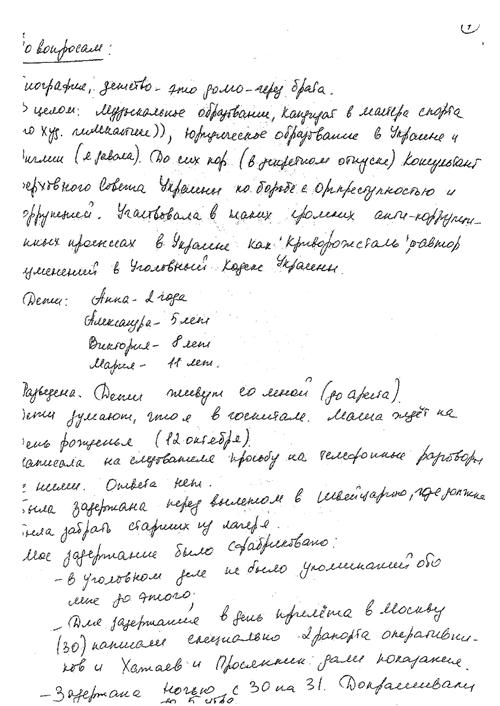 1
о вопросам:
иография, детство - это долго - через брата.
целом: Музыкальное образование, кандидат в мастера спорта
по худ. гимнастике)), юридическое образование в Украине и
Англии (я завала). До сих пор (в декретном отпуске) Консультант
ерховного Совета Украины по борьбе с оргпреступностью и
оррупцией. Участвовала в таких громких анти-коррупци-
нных процессах в Украине как "Криворожсталь", автор
изменений в Уголовный Кодекс Украины.
Дети: Анна - 2 года
Александра - 5 лет
Виктория - 8 лет
Мария - 11 лет.
Разведена. Дети живут со мной (до ареста).
Дети думают, что я в госпитале. Маша ждёт на
ень рожденья (12 октября).
аписала на следователя просьбу на телефонные разговоры
с ними. Ответа нет.
ыла задержана перед вылетом в Швейцарию, где должна
ыла забрать старших из лагеря.
Мое задержание было сфабриковано:
- в уголовном деле не было упоминаний обо
мне до этого;
- Для задержания в день прилёта в Москву
(30) написали специально 2 рапорта оперативни-
ков и Хатаев и Просянкин дали показания.
- Задержана ночью с 30 на 31. Допрашивали